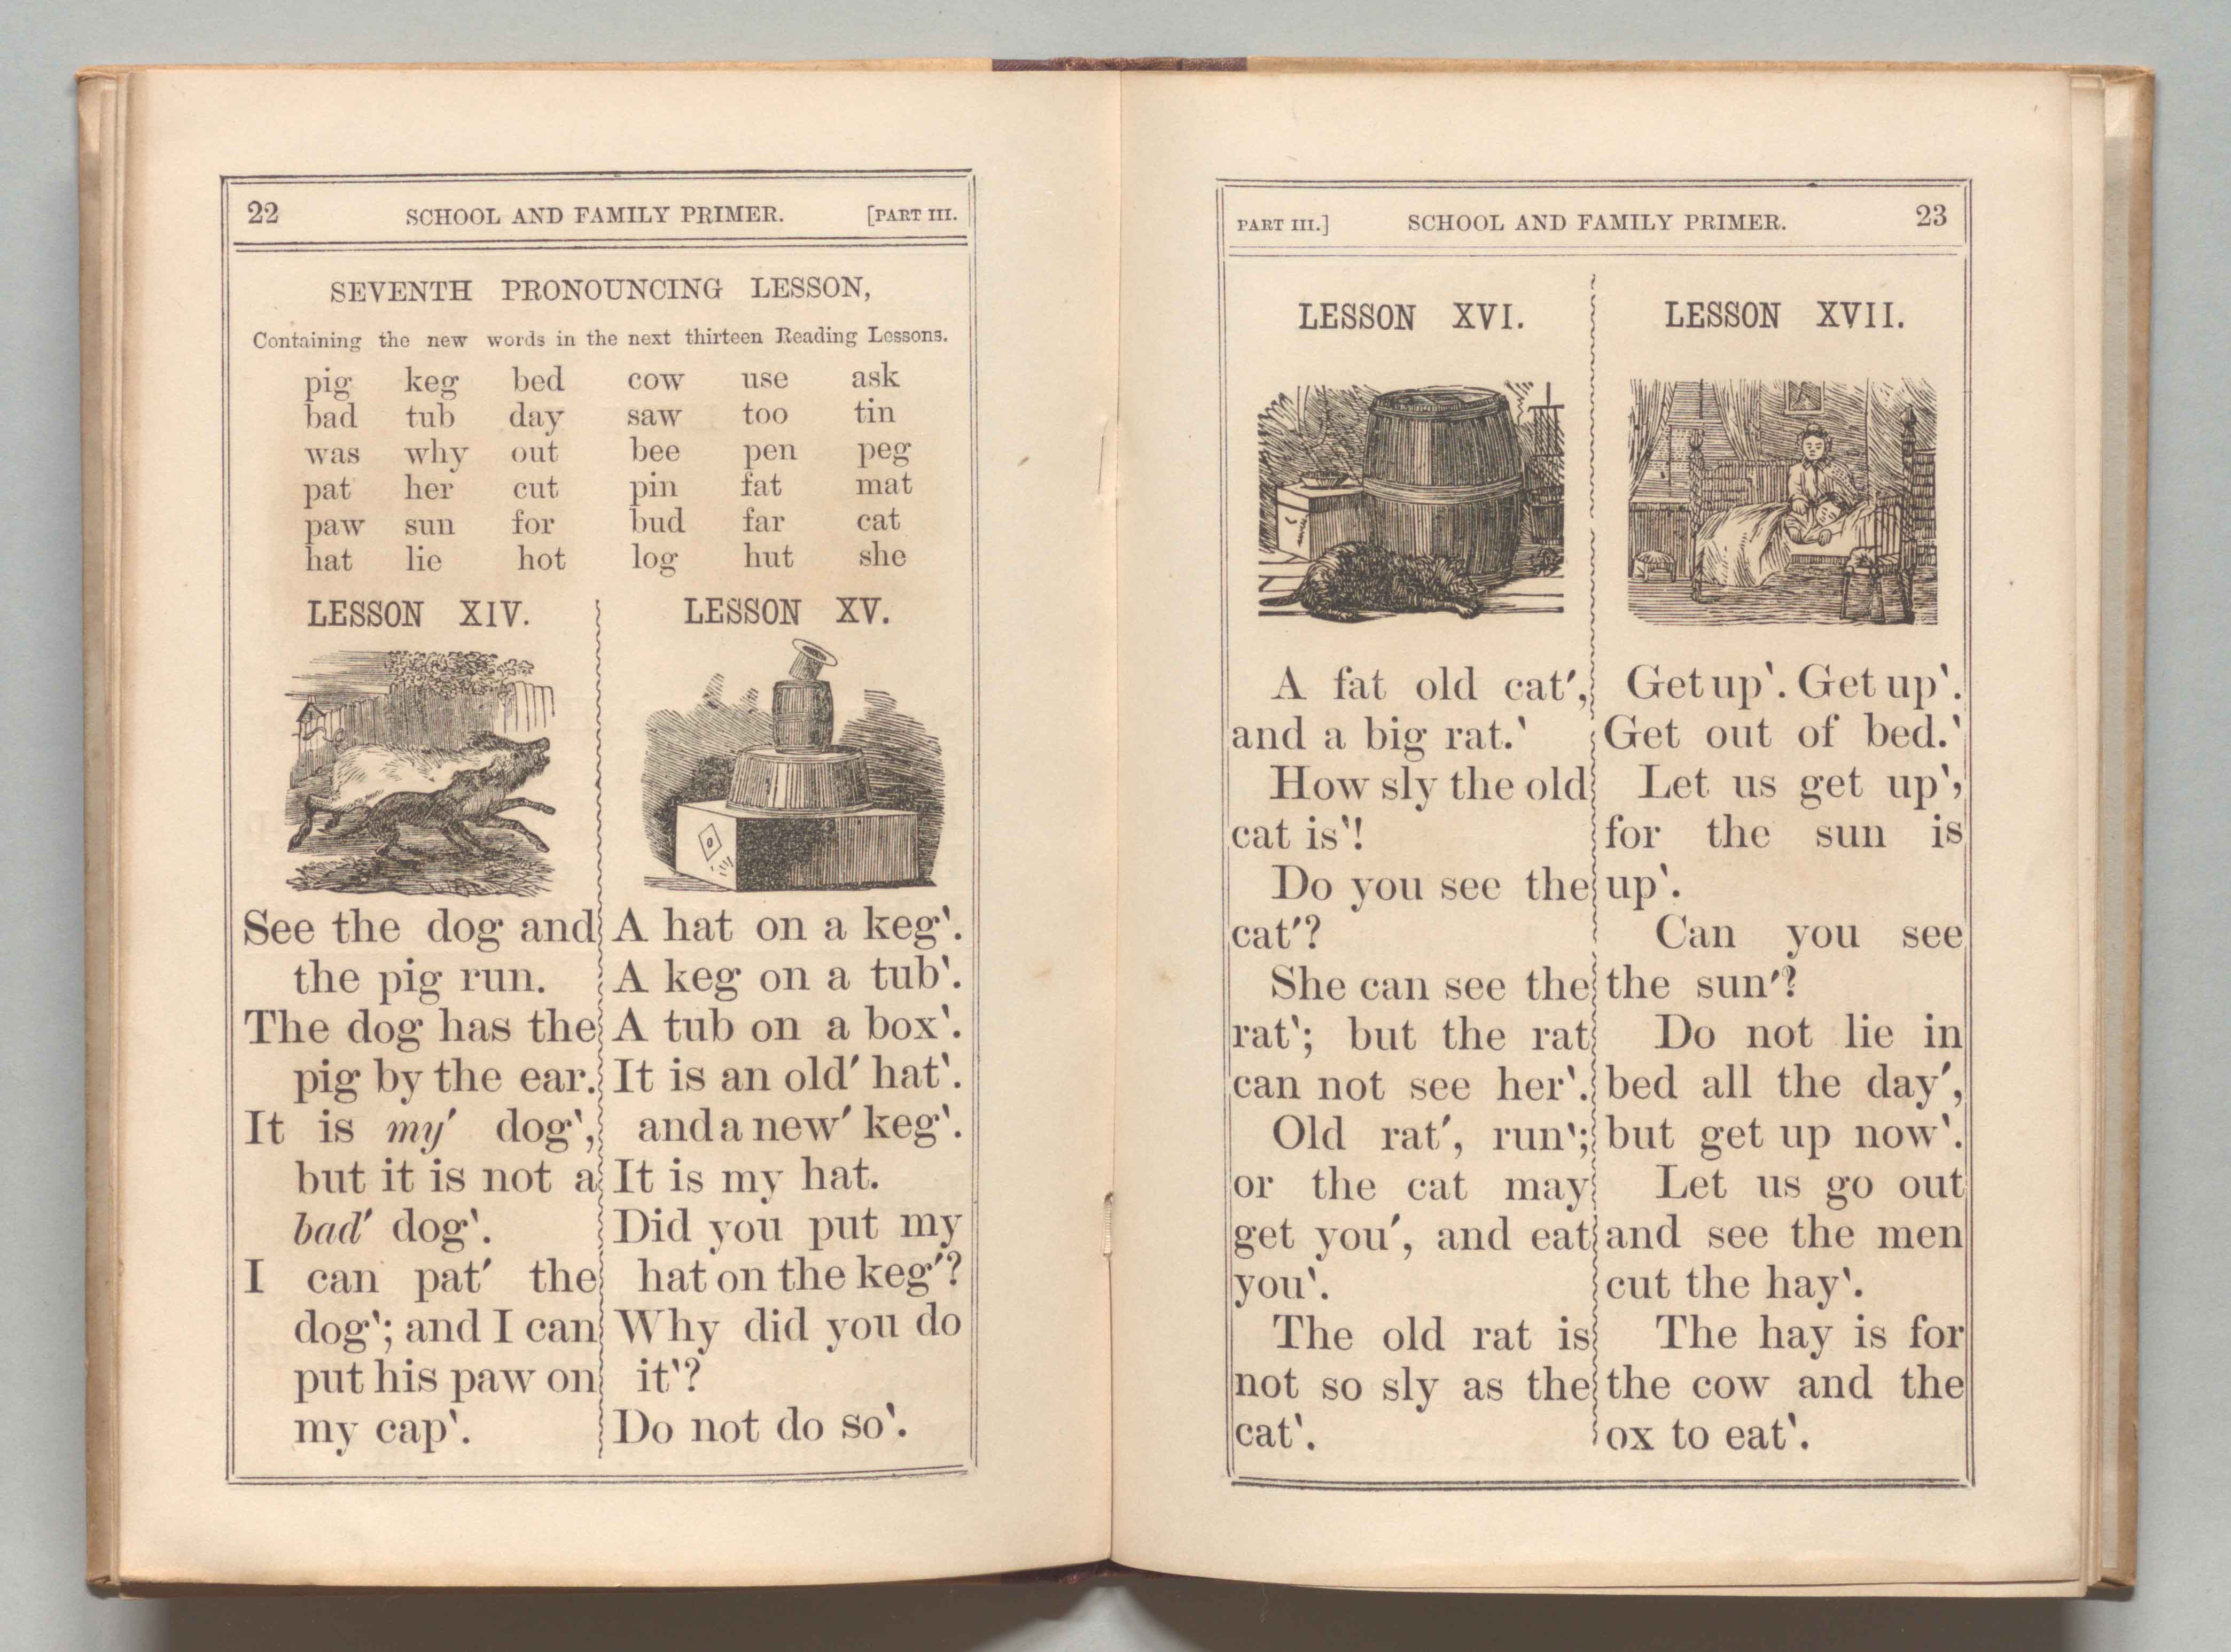 22 SCHOOL AND FAMILY PRIMER. [PART III.
SEVENTH PRONOUNCING LESSON,
Containing the new words in the next thirteen Reading Lessons.
pig keg bed cow use ask
bad tub day saw too tin
was why out bee pen peg
pat her cut pin fat mat
paw sun for bud far cat
hat lie hot log hut she
LESSON XIV.
See the dog and
the pig run.
The dog has the
pig by the ear.
It is my′ dog‵,
but it is not a
bad′ dog‵.
I can pat′ the
dog‵; and I can
put his paw on
my cap‵.
LESSON XV.
A hat on a keg‵.
A keg on a tub‵.
A tub on a box‵.
It is an old′ hat‵.
and a new′ keg‵.
It is my hat.
Did you put my
hat on the keg′?
Why did you do
it‵?
Do not do so‵.
PART III.] SCHOOL AND FAMILY PRIMER. 23
LESSON XVI.
A fat old cat′,
and a big rat.‵
How sly the old
cat is‵!
Do you see the
cat′?
She can see the
rat‵; but the rat
can not see her‵.
Old rat′, run‵;
or the cat may
get you′, and eat
you‵.
The old rat is
not so sly as the
cat‵.
LESSON XVII.
Get up‵. Get up‵.
Get out of bed.‵
Let us get up‵;
for the sun is
up‵.
Can you see
the sun′?
Do not lie in
bed all the day′,
but get up now‵.
Let us go out
and see the men
cut the hay‵.
The hay is for
the cow and the
ox to eat‵.